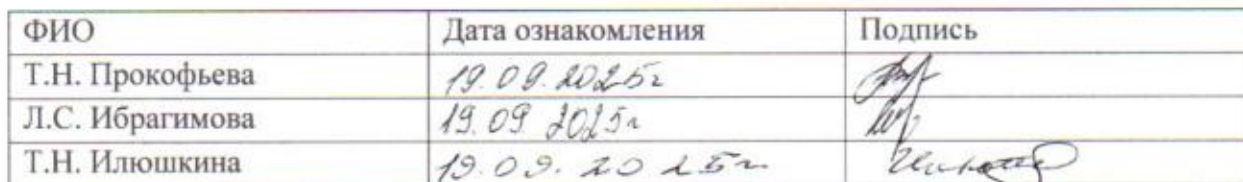 ФИО Дата ознакомления Подпись
Т.Н. Прокофьева 19.09.2025г
Л.С. Ибрагимова 19.09.2025г
Т.Н. Илюшкина 19.09.2025г.